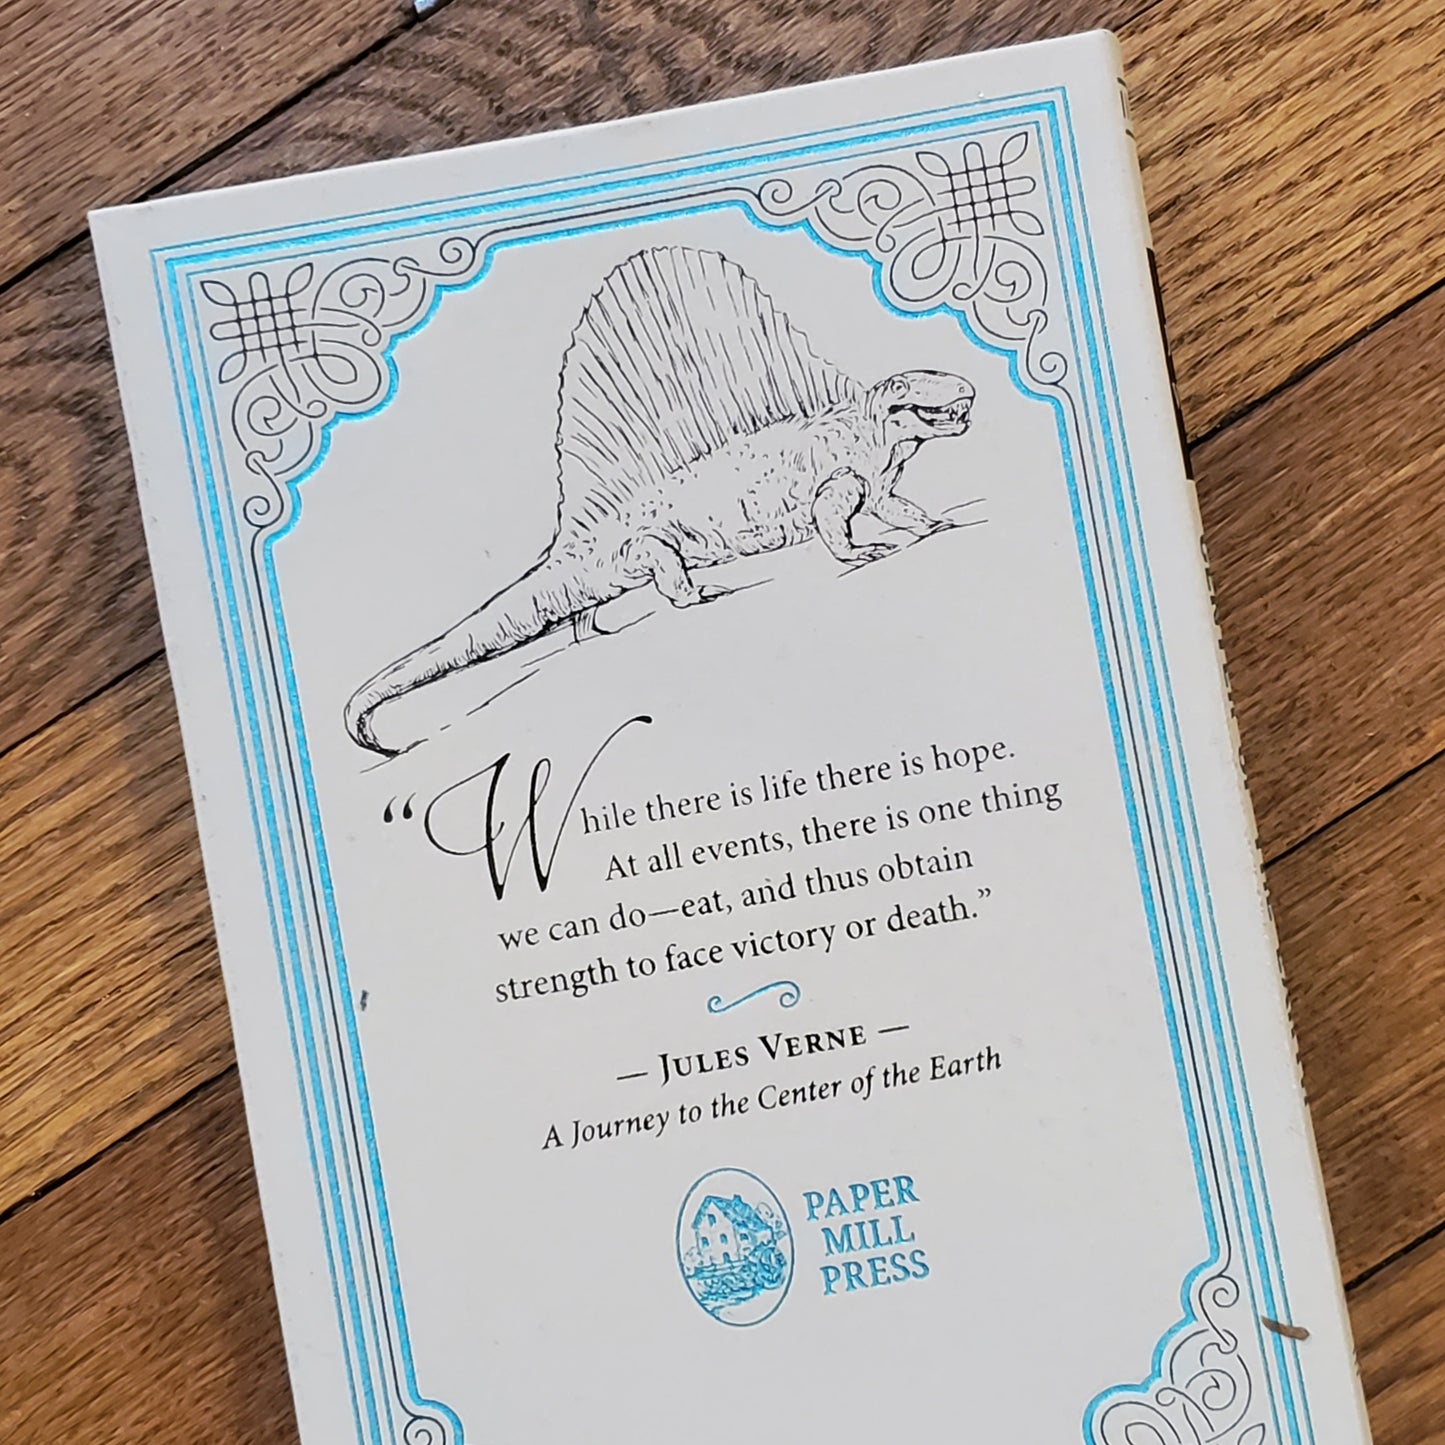 “While there is life there is hope.
At all events, there is one thing
we can do—eat, and thus obtain
strength to face victory or death.”
— JULES VERNE —
A Journey to the Center of the Earth
PAPER
MILL
PRESS